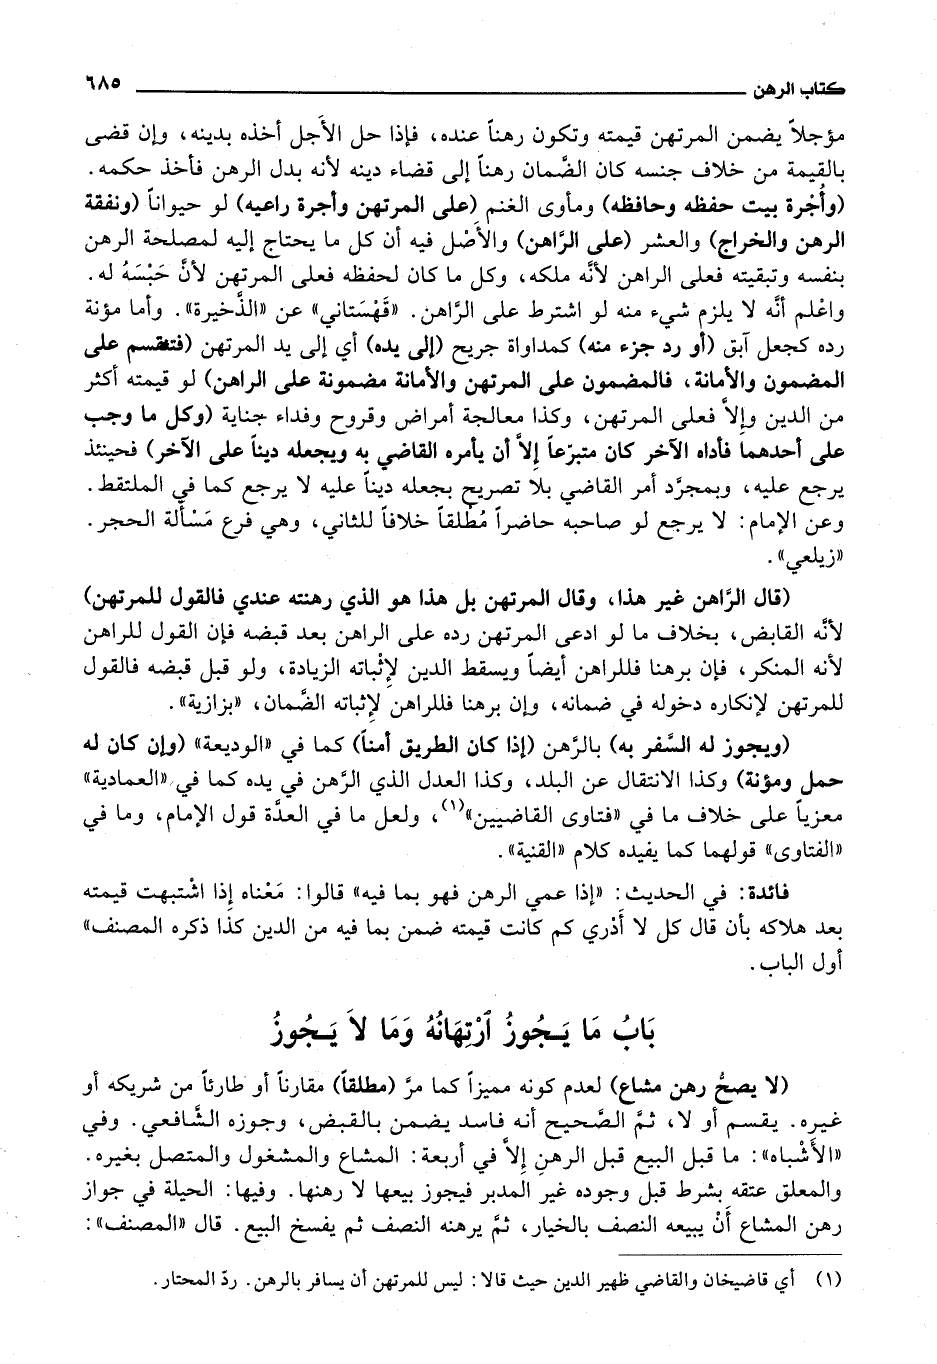 كتاب الرهن ٦٨٥
مؤجلاً يضمن المرتهن قيمته وتكون رهناً عنده، فإذا حل الأَجل أخذه بدينه، وإن قضى
بالقيمة من خلاف جنسه كان الضَّمان رهناً إلى قضاء دينه لأنه بدل الرهن فأخذ حكمه.
(وأُجرة بيت حفظه وحافظه) ومأوى الغنم (على المرتهن وأجرة راعيه) لو حيواناً (ونفقة
الرهن والخراج) والعشر (على الرَّاهن) والأَصْل فيه أن كل ما يحتاج إليه لمصلحة الرهن
بنفسه وتبقيته فعلى الراهن لأنَّه ملكه، وكل ما كان لحفظه فعلى المرتهن لأنَّ حَبْسَهُ له.
واعْلم أنَّه لا يلزم شيء منه لو اشترط على الرَّاهن. «قَهْسَتاني» عن «الذَّخيرة». وأما مؤنة
رده كجعل آبق (أو رد جزء منه) كمداواة جريح (إلى يده) أي إلى يد المرتهن (فتنقسم على
المضمون والأمانة، فالمضمون على المرتهن والأمانة مضمونة على الراهن) لو قيمته أكثر
من الدين وإلاَّ فعلى المرتهن، وكذا معالجة أمراض وقروح وفداء جناية (وكل ما وجب
على أحدهما فأداه الآخر كان متبرّعاً إلاَّ أن يأمره القاضي به ويجعله ديناً على الآخر) فحينئذ
يرجع عليه، وبمجرَّد أمر القاضي بلا تصريح بجعله ديناً عليه لا يرجع كما في الملتقط.
وعن الإمام: لا يرجع لو صاحبه حاضراً مُطْلقاً خلافاً للثاني، وهي فرع مَسْألة الحجر.
«زيلعي».
(قال الرَّاهن غير هذا، وقال المرتهن بل هذا هو الذي رهنته عندي فالقول للمرتهن)
لأنَّه القابض، بخلاف ما لو ادعى المرتهن رده على الراهن بعد قبضه فإن القول للراهن
لأنه المنكر، فإن برهنا فللراهن أيضاً ويسقط الدين لإثباته الزيادة، ولو قبل قبضه فالقول
للمرتهن لإنكاره دخوله في ضمانه، وإن برهنا فللراهن لإثباته الضَّمان، «بزازية».
(ويجوز له السَّفر به) بالرَّهن (إذا كان الطريق أمناً) كما في «الوديعة» (وإن كان له
حمل ومؤنة) وكذا الانتقال عن البلد، وكذا العدل الذي الرَّهن في يده كما في «العمادية»
معزياً على خلاف ما في «فتاوى القاضيين»(١)، ولعل ما في العدَّة قول الإمام، وما في
«الفتاوى» قولهما كما يفيده كلام «القنية».
فائدة: في الحديث: «إذا عمي الرهن فهو بما فيه» قالوا: مَعْناه إذا اشْتبهت قيمته
بعد هلاكه بأن قال كل لا أَدْري كم كانت قيمته ضمن بما فيه من الدين كذا ذكره المصنف»
أول الباب.
بَابُ مَا يَـجُوزُ ٱرْتِهَانُهُ وَمَا لاَ يَـجُوزُ
(لا يصحُّ رهن مشاع) لعدم كونه مميزاً كما مرَّ (مطلقاً) مقارناً أو طارئاً من شريكه أو
غيره. يقسم أو لا، ثمَّ الصَّحيح أنه فاسد يضمن بالقبض، وجوزه الشَّافعي. وفي
«الأَشْباه»: ما قبل البيع قبل الرهن إلاَّ في أربعة: المشاع والمشغول والمتصل بغيره.
والمعلق عتقه بشرط قبل وجوده غير المدبر فيجوز بيعها لا رهنها. وفيها: الحيلة في جواز
رهن المشاع أَنْ يبيعه النصف بالخيار، ثمَّ يرهنه النصف ثم يفسخ البيع. قال «المصنف»:
(١) أي قاضيخان والقاضي ظهير الدين حيث قالا: ليس للمرتهن أن يسافر بالرهن. ردّ المحتار.